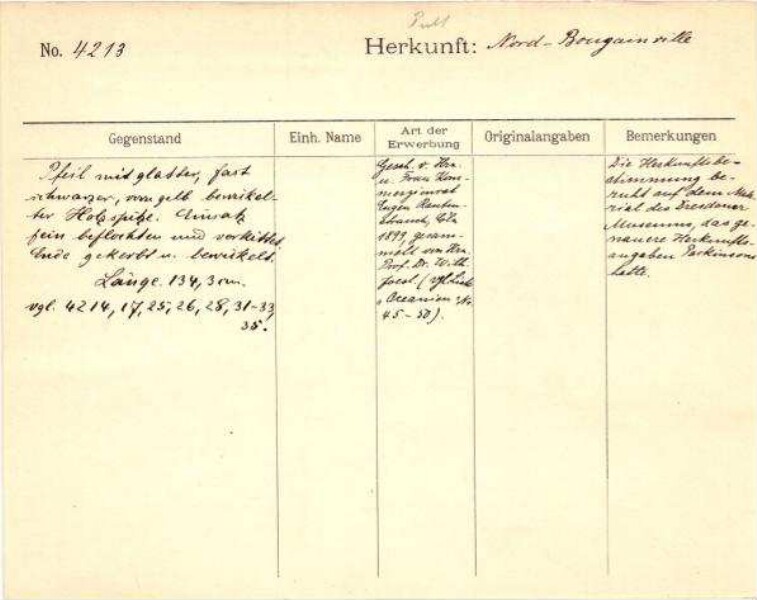 No. 4213
Herkunft: Nord-Bougainville
Gegenstand
Einh. Name
Art der Erwerbung
Originalangaben
Bemerkungen
Pfeil mit glatter, fast
schwarzer, vorn gelb bewickel-
ter Holzspitze. Einsatz
fein beflochten und verkittet.
Ende gekerbt u. bewickelt.
Länge. 134,3 cm.
vgl. 4214, 17, 25, 26, 28, 31-33,
35.
Gesch. v. Hrn.
u. Frau Kom-
merzienrat
Eugen Rauten-
strauch, Cöln
1899, gesam-
melt von Hrn.
Prof. Dr. Wilh.
Joest. (vgl. Liste
Oceanien No
45-50).
Die Herkunftsbe-
stimmung be-
ruht auf dem Mate-
rial des Dresdener
Museums, das ge-
nauere Herkunfts-
angaben Parkinsons
hatte.